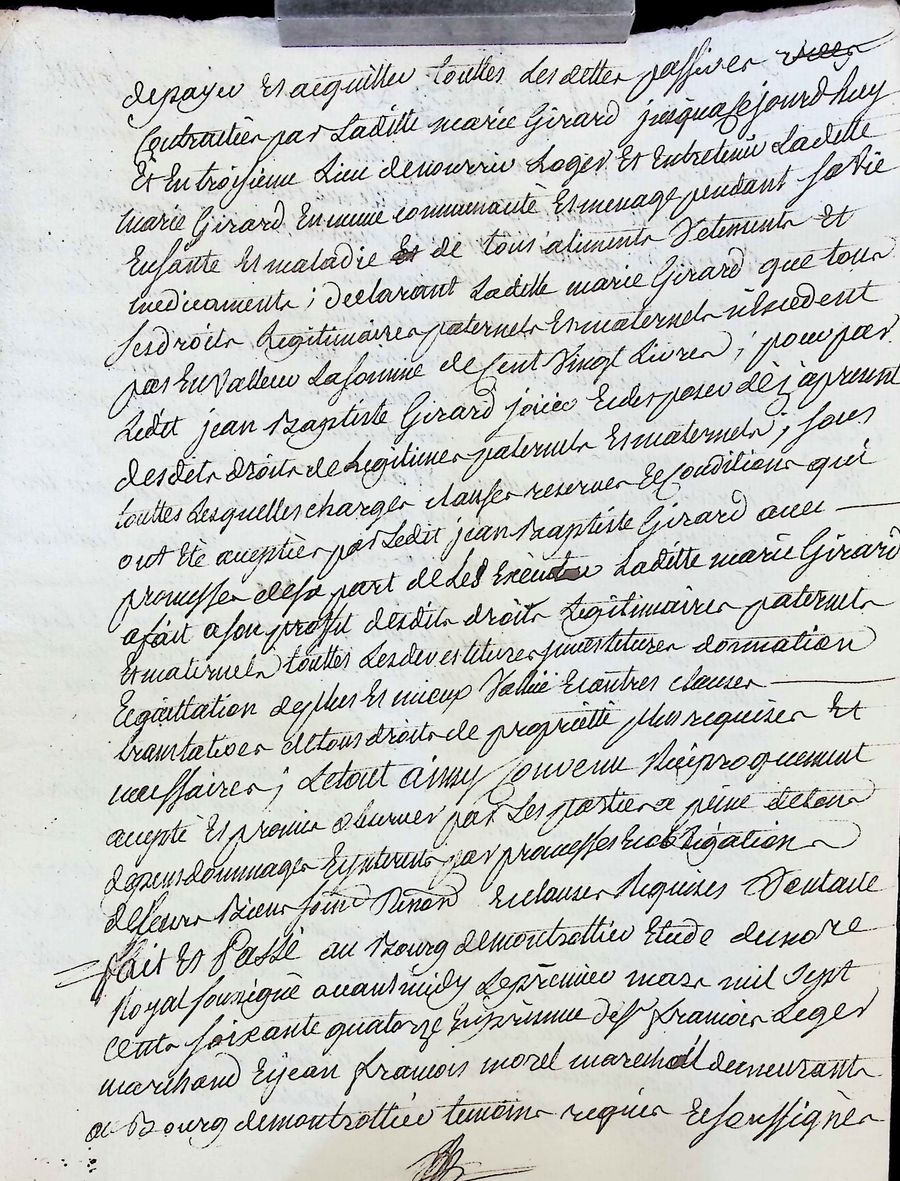 depayer Et acquitter touttes Lesdettes passives
Contractées par Laditte marie Girard jusquaCejourdhuy
Et En troisieme Lieu denourrir Loger Et Entretenir Laditte
marie Girard En meme communauté Et menage pendant sa Vie
En santé Et maladie de tous aliments Vetements Et
medicaments ; declarant Laditte marie Girard que tous
ses droits Legitimaires paternels Et maternels n'Excedent
pas En Valleur La somme de Cent Vingt Livres ; pour par
Ledit jean Baptiste Girard jouir Et disposer déz apresent
desdits droits de Legitimes paternels Et maternels ; sous
touttes Lesquelles charges clauses reserves Et Conditions qui
ont Eté aceptées par Ledit jean Baptiste Girard avec
promesses de sa part de Les Executer Laditte marie Girard
a fait a son proffit desdits droits Legitimaires paternels
Et maternels touttes Les devestitures investitures donnation
Et quittation de plus Et mieux Vallüe Et autres clauses
translatives de tous droits de proprietté plus requises Et
necessaires ; Le tout ainsy Convenu Reciproquement
acepté Et promis observer par Les parties a peine de tous
depens dommages Et interets par promesses Et obligation
de Leurs Biens Et clauses Requises Dont acte
fait Et Passé au Bourg de montrottier Etude du nore
Royal soussigné avant midy Le premier mars mil sept
Cents soixante quatorze En presence de sr francois Leger
marchand Et jean francois morel marechal demeurants
au Bourg de montrottier temoins requis Et soussignés